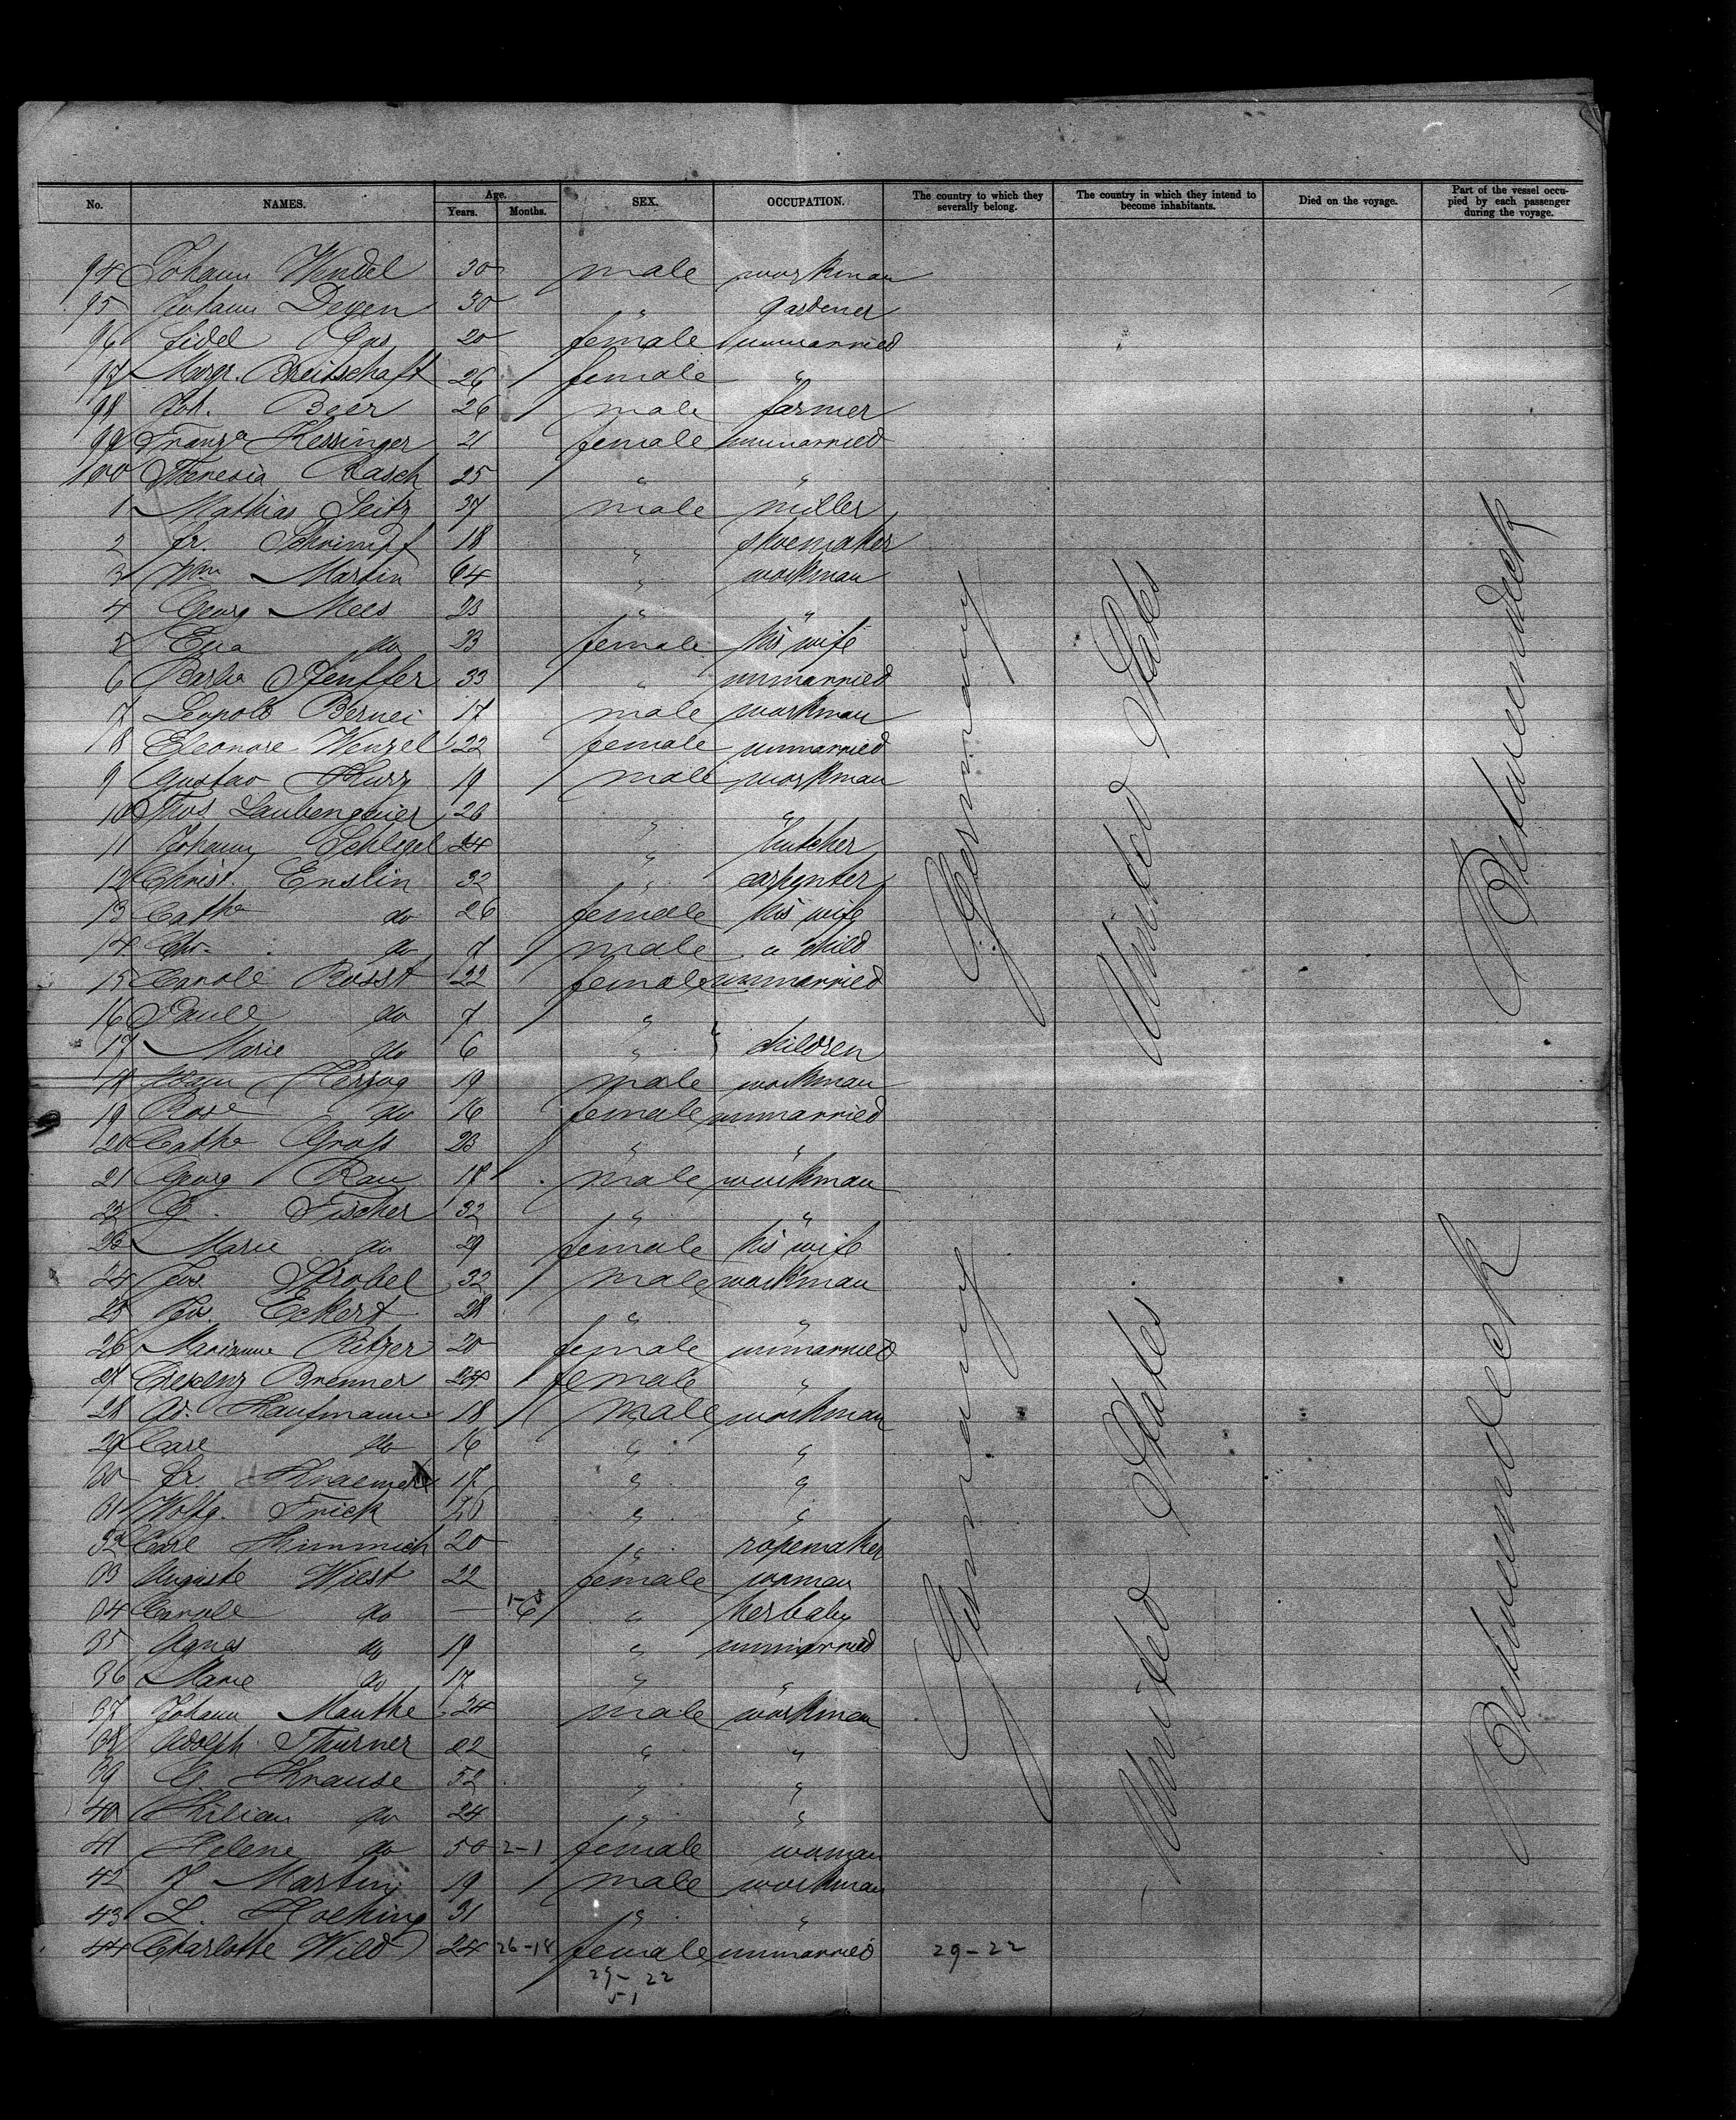 No. NAMES. Age. Years. Months. SEX. OCCUPATION. The country to which they severally belong. The country in which they intend to become inhabitants. Died on the voyage. Part of the vessel occupied by each passenger during the voyage.
94 Johann Windel 30 male workman
95 Johann Degen 30 " gardener
96 Fidel 20 female unmarried
97 Margr. Breitschaft 26 female "
98 Joh. Beer 26 male farmer
99 Franza Kessinger 21 female unmarried
100 Theresia Rasch 25 " "
1 Mathias Seitz 37 male miller
2 Fr. Schrimpf 18 " shoemaker
3 Wm Martin 64 " workman
4 Georg Mees 23 " "
5 Eva do 33 female his wife
6 Barba Pfeuffer 33 " unmarried
7 Leopold Bernei 17 male workman
8 Eleonore Wenzel 22 female unmarried
9 Gustav Kurz 19 male workman
10 Thos Laubengaier 26 " "
11 Johann Schlegel 24 " butcher
12 Christ. Enslin 32 " carpenter
13 Cathe do 26 female his wife
14 Chr. do 7 male a child
15 Carole Rosst 22 female unmarried
16 Paule do 7 "
17 Marie do 6 " children
18 Herzog 19 male workman
19 Rose do 16 female unmarried
20 Cathe Gross 23 " "
21 Georg Rau 18 male workman
22 G. Fischer 32 " "
23 Marie do 29 female his wife
24 Jos. Strobel 32 male workman
25 Eckert 28 " "
26 Marianne Ritzer 20 female unmarried
27 Crescenz Brenner 24 female "
28 Ad. Kaufmann 18 male workman
29 Carl do 16 " "
30 Fr. Kraemer 17 " "
31 Wolfg. Frick " "
32 Carl Himmich 20 " ropemaker
33 Auguste Wiest 22 female woman
34 Carole do — 6 " her baby
35 Agnes do 19 " unmarried
36 Marie do 17 " "
37 Johann Mauthe 24 male workman
38 Adolph Thurner 22 " "
39 G. Krause 52 " "
40 Kilian do 24 " "
41 Helene do 50 2-1 female woman
42 J Martin 19 male workman
43 L. Hoelking 31 " "
44 Charlotte Wild 24 26-18 female unmarried 29-22
29-22
51
Germany
United States
Betweendeck
Germany
United States
Betweendeck